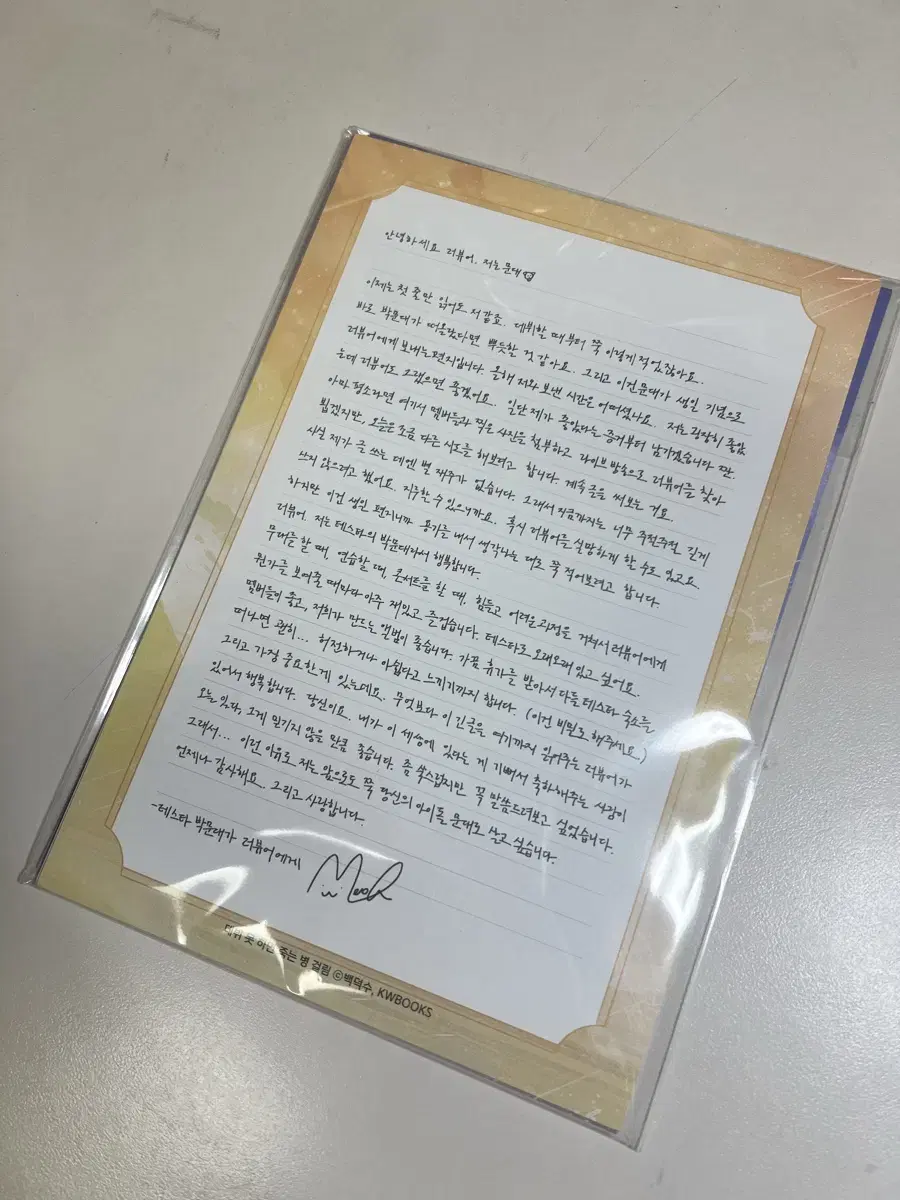 안녕하세요 러뷰어. 저는 문대
이제는 첫 줄만 읽어도 저 같죠. 데뷔할 때부터 쭉 이렇게 적어왔잖아요.
바로 박문대가 떠올랐다면 뿌듯할 것 같아요. 그리고 이건 문대가 생일 기념으로
러뷰어에게 보내는 편지입니다. 올해 저와 보낸 시간은 어떠셨나요. 저는 굉장히 좋았
는데 러뷰어도 그랬으면 좋겠어요. 일단 제가 좋았다는 증거부터 남기겠습니다 짠.
아마 평소라면 여기서 멤버들과 찍은 사진을 첨부하고 라이브 방송으로 러뷰어를 찾아
뵙겠지만, 오늘은 조금 다른 시도를 해보려고 합니다. 계속 글을 써보는 거요.
사실 제가 글 쓰는 데엔 별 재주가 없습니다. 그래서 지금까지는 너무 주절주절 길게
쓰지 않으려고 했어요. 지루할 수 있으니까요. 혹시 러뷰어를 실망하게 할 수도 있고요.
하지만 이건 생일 편지니까 용기를 내서 생각나는 대로 쭉 적어보려고 합니다.
러뷰어. 저는 테스타의 박문대라서 행복합니다.
무대를 할 때, 연습할 때, 콘서트를 할 때, 힘들고 어려운 과정을 거쳐서 러뷰어에게
뭔가를 보여줄 때마다 아주 재밌고 즐겁습니다. 테스타로 오래오래 있고 싶어요.
멤버들이 좋고, 저희가 만드는 앨범이 좋습니다. 가끔 휴가를 받아서 다들 테스타 숙소를
떠나면 괜히... 허전하거나 아쉽다고 느끼기까지 합니다. (이건 비밀로 해주세요.)
그리고 가장 중요한 게 있는데요. 무엇보다 이 긴 글을 여기까지 읽어주는 러뷰어가
있어서 행복합니다. 당신이요. 내가 이 세상에 있다는 게 기뻐서 축하해주는 사람이
오늘 있다, 그게 믿기지 않을 만큼 좋습니다. 좀 쑥스럽지만 꼭 말씀드려보고 싶었습니다.
그래서... 이런 이유로 저는 앞으로도 쭉 당신의 아이돌 문대로 살고 싶습니다.
언제나 감사해요. 그리고 사랑합니다.
-테스타 박문대가 러뷰어에게
데뷔 못 하면 죽는 병 걸림 ©백덕수, KWBOOKS